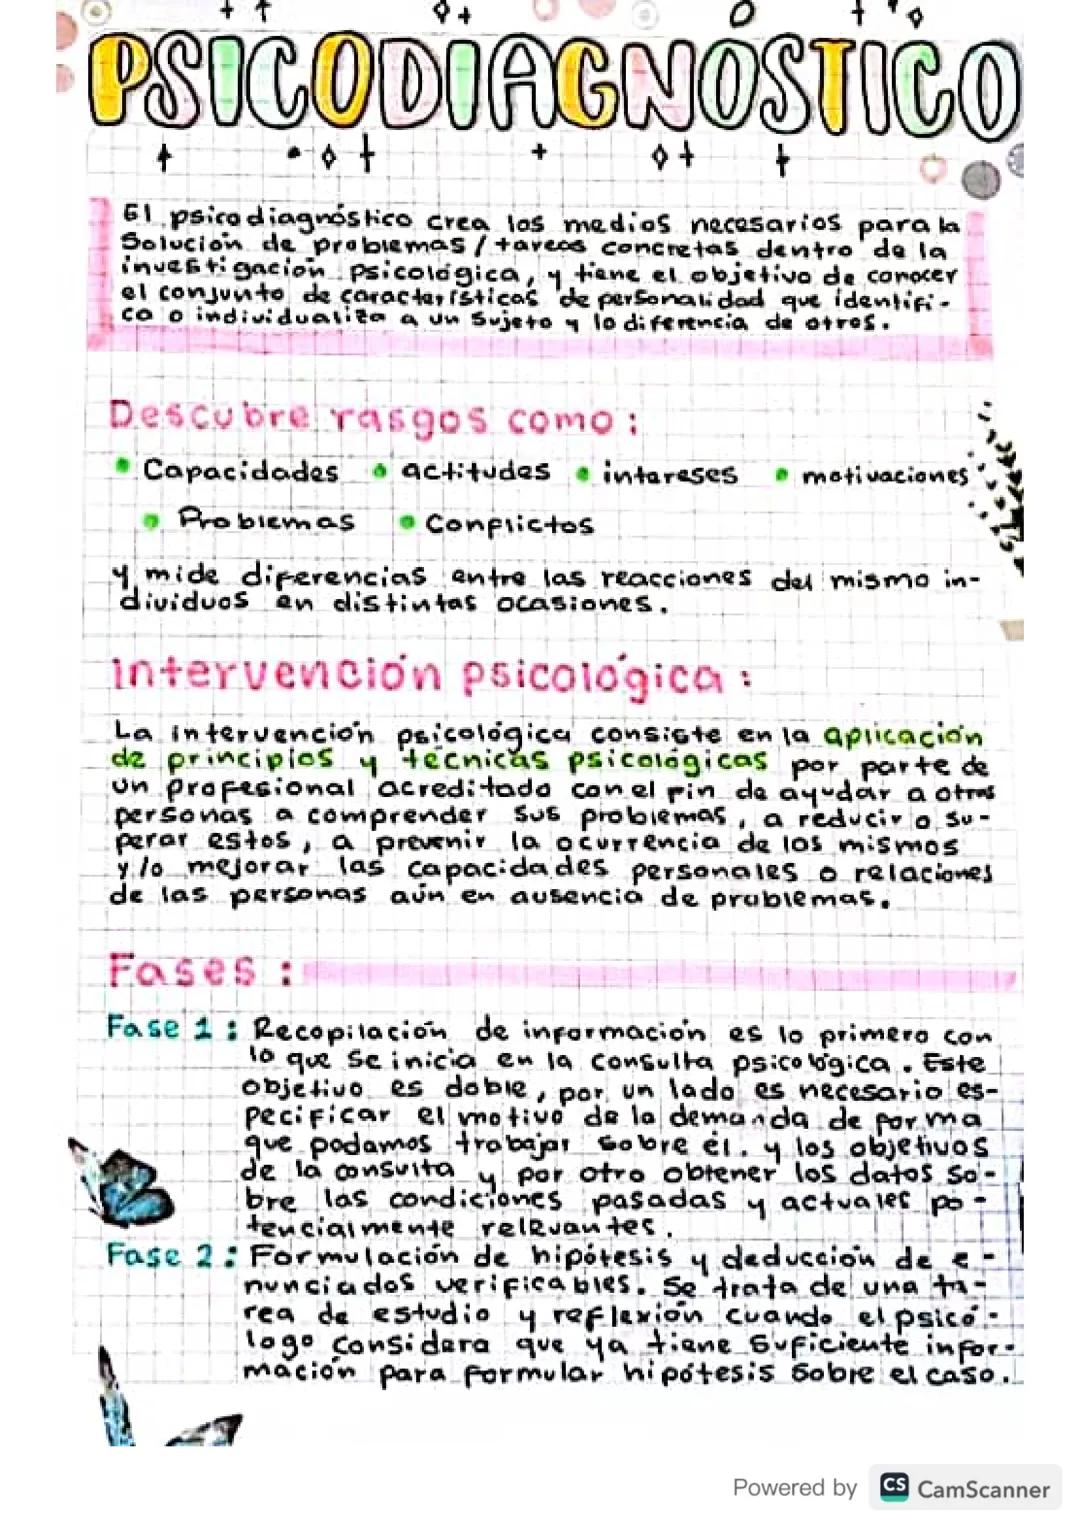 PSICODIAGNÓSTICO
El psicodiagnóstico crea los medios necesarios para la
Solución de problemas / tareas concretas dentro de la
investigación psicológica, y tiene el objetivo de conocer
el conjunto de características de personalidad que identifi-
ca o individualiza a un sujeto y lo diferencia de otros.
Descubre rasgos como:
• Capacidades • actitudes • intereses • motivaciones
• Problemas • Conflictos
y mide diferencias entre las reacciones del mismo in-
dividuos en distintas ocasiones.
Intervención psicológica:
La intervención psicológica consiste en la aplicación
de principios y técnicas psicológicas por parte de
un profesional acreditado con el fin de ayudar a otras
personas a comprender sus problemas, a reducir o su-
perar estos, a prevenir la ocurrencia de los mismos
y/o mejorar las capacidades personales o relaciones
de las personas aún en ausencia de problemas.
Fases:
Fase 1: Recopilación de información es lo primero con
lo que se inicia en la consulta psicológica. Este
objetivo es doble, por un lado es necesario es-
pecificar el motivo de la demanda de forma
que podamos trabajar sobre él. y los objetivos
de la consulta y por otro obtener los datos so-
bre las condiciones pasadas y actuales po-
tencialmente relevantes.
Fase 2: Formulación de hipótesis y deducción de e-
nunciados verificables. Se trata de una ta-
rea de estudio y reflexión cuando el psicó-
logo considera que ya tiene suficiente infor-
mación para formular hipótesis sobre el caso.
Powered by CS CamScanner